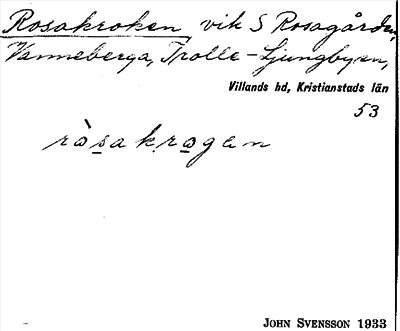 Rosakroken, vik S Rosagården,
Vanneberga, Trolle-Ljungbyen,
Villands hd, Kristianstads län
53
ròsakrogen
JOHN SVENSSON 1933